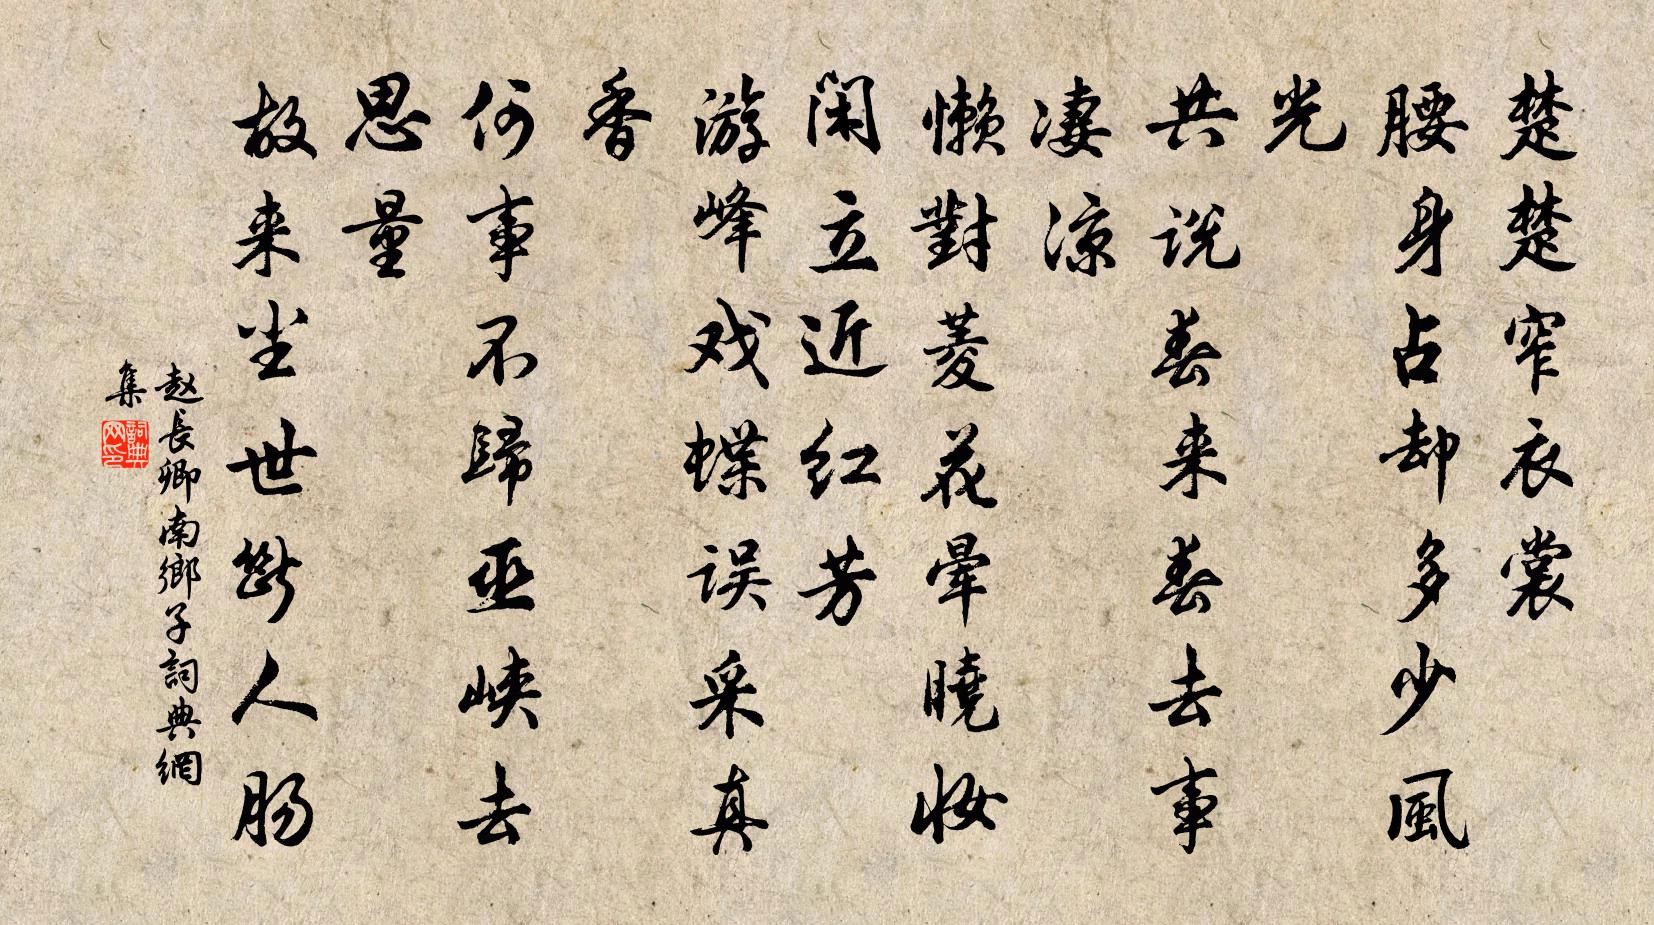 楚楚窄衣裳
腰身占却多少風
光
共说春来春去事
凄凉
懒對菱花暈曉妆
闲立近红芳
游峰戏蝶误采真
香
何事不歸巫峡去
思量
故来尘世斷人肠
赵長卿南鄉子詞典網
集
詞典
网印